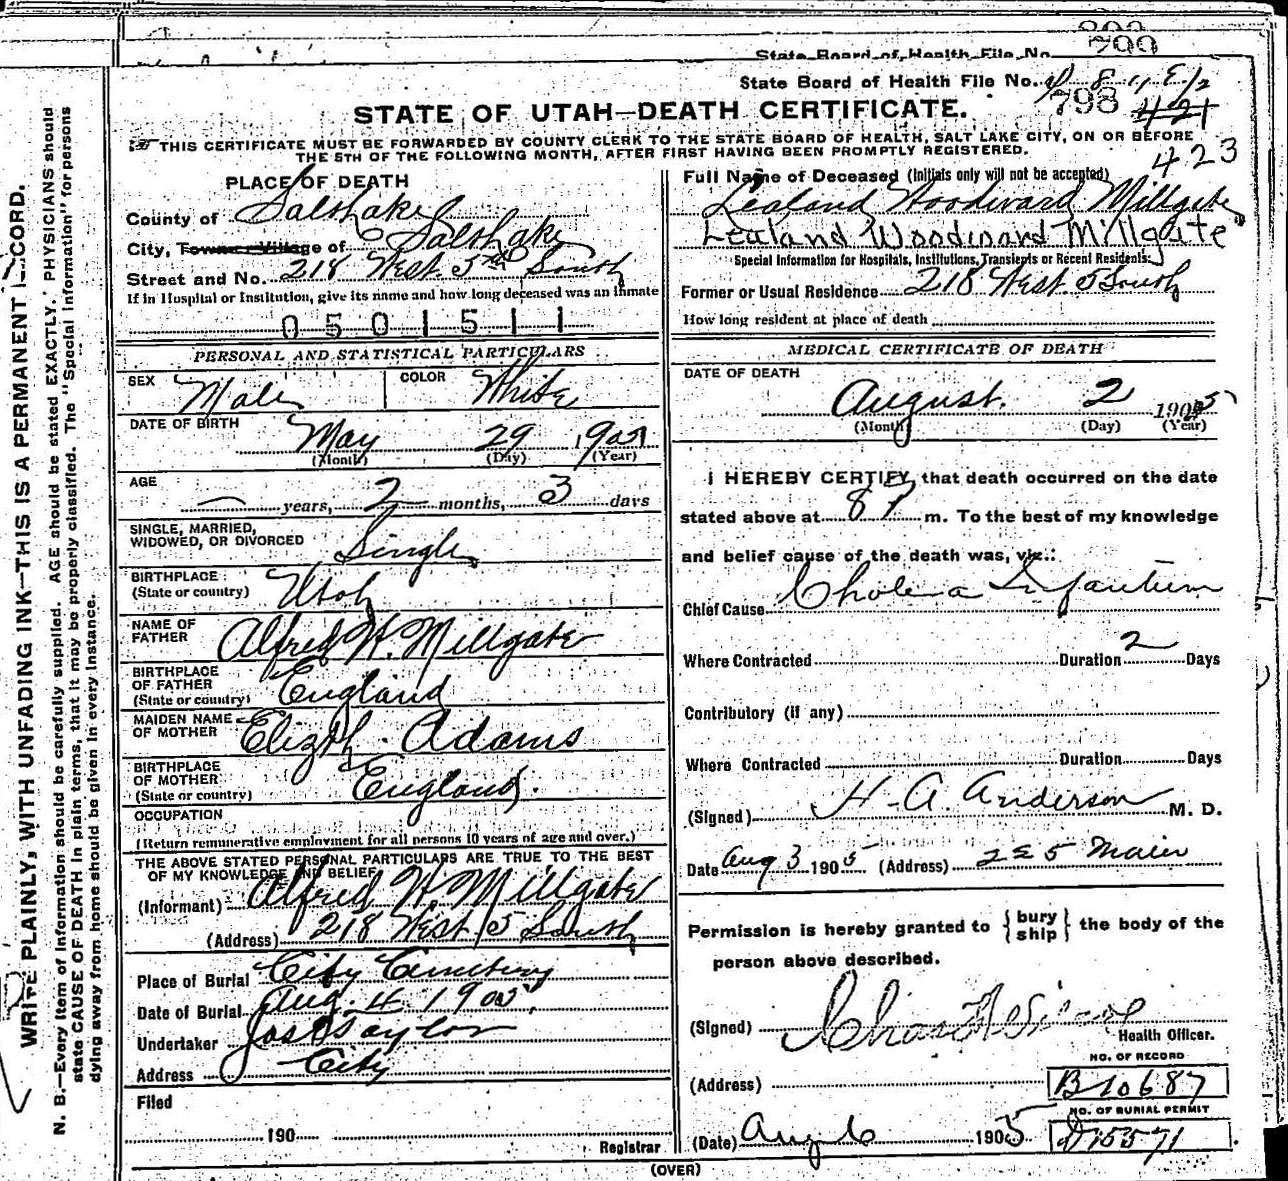 State Board of Health File No. 799
State Board of Health File No.
798 421
423
STATE OF UTAH—DEATH CERTIFICATE.
THIS CERTIFICATE MUST BE FORWARDED BY COUNTY CLERK TO THE STATE BOARD OF HEALTH, SALT LAKE CITY, ON OR BEFORE
THE 5TH OF THE FOLLOWING MONTH, AFTER FIRST HAVING BEEN PROMPTLY REGISTERED.
WRITE PLAINLY, WITH UNFADING INK—THIS IS A PERMANENT RECORD.
N. B.—Every item of information should be carefully supplied. AGE should be stated EXACTLY. PHYSICIANS should
state CAUSE OF DEATH in plain terms, that it may be properly classified. The "Special Information" for persons
dying away from home should be given in every instance.
PLACE OF DEATH
County of Salt Lake
City, Town or Village of Salt Lake
Street and No. 218 West 5th South
If in Hospital or Institution, give its name and how long deceased was an inmate
0501511
PERSONAL AND STATISTICAL PARTICULARS
SEX Male COLOR White
DATE OF BIRTH May 29 1905
(Month) (Day) (Year)
AGE — years, 2 months, 3 days
SINGLE, MARRIED,
WIDOWED, OR DIVORCED Single
BIRTHPLACE
(State or country) Utah
NAME OF
FATHER Alfred W. Millgate
BIRTHPLACE
OF FATHER
(State or country) England
MAIDEN NAME
OF MOTHER Elizth. Adams
BIRTHPLACE
OF MOTHER
(State or country) England.
OCCUPATION
(Return remunerative employment for all persons 10 years of age and over.)
THE ABOVE STATED PERSONAL PARTICULARS ARE TRUE TO THE BEST
OF MY KNOWLEDGE AND BELIEF
(Informant) Alfred W. Millgate
(Address) 218 West 5 South
Place of Burial City Cemetery
Date of Burial Aug. 4 1905
Undertaker Jos Taylor
Address City
Filed
190
Registrar
Full Name of Deceased (Initials only will not be accepted)
Lealand Woodward Millgate
Lealand Woodward Millgate
Special Information for Hospitals, Institutions, Transients or Recent Residents.
Former or Usual Residence 218 West 5 South
How long resident at place of death
MEDICAL CERTIFICATE OF DEATH
DATE OF DEATH
August. 2 1905
(Month) (Day) (Year)
I HEREBY CERTIFY, that death occurred on the date
stated above at 8 P m. To the best of my knowledge
and belief cause of the death was, viz.:
Chief Cause Cholera Infantum
Where Contracted Duration 2 Days
Contributory (if any)
Where Contracted Duration Days
(Signed) H. A. Anderson M. D.
Date Aug 3 1905 (Address) 225 Main
Permission is hereby granted to { bury ship } the body of the
person above described.
(Signed) Health Officer.
NO. OF RECORD
(Address) B10687
NO. OF BURIAL PERMIT
(Date) Aug 6 1905 D15571
(OVER)